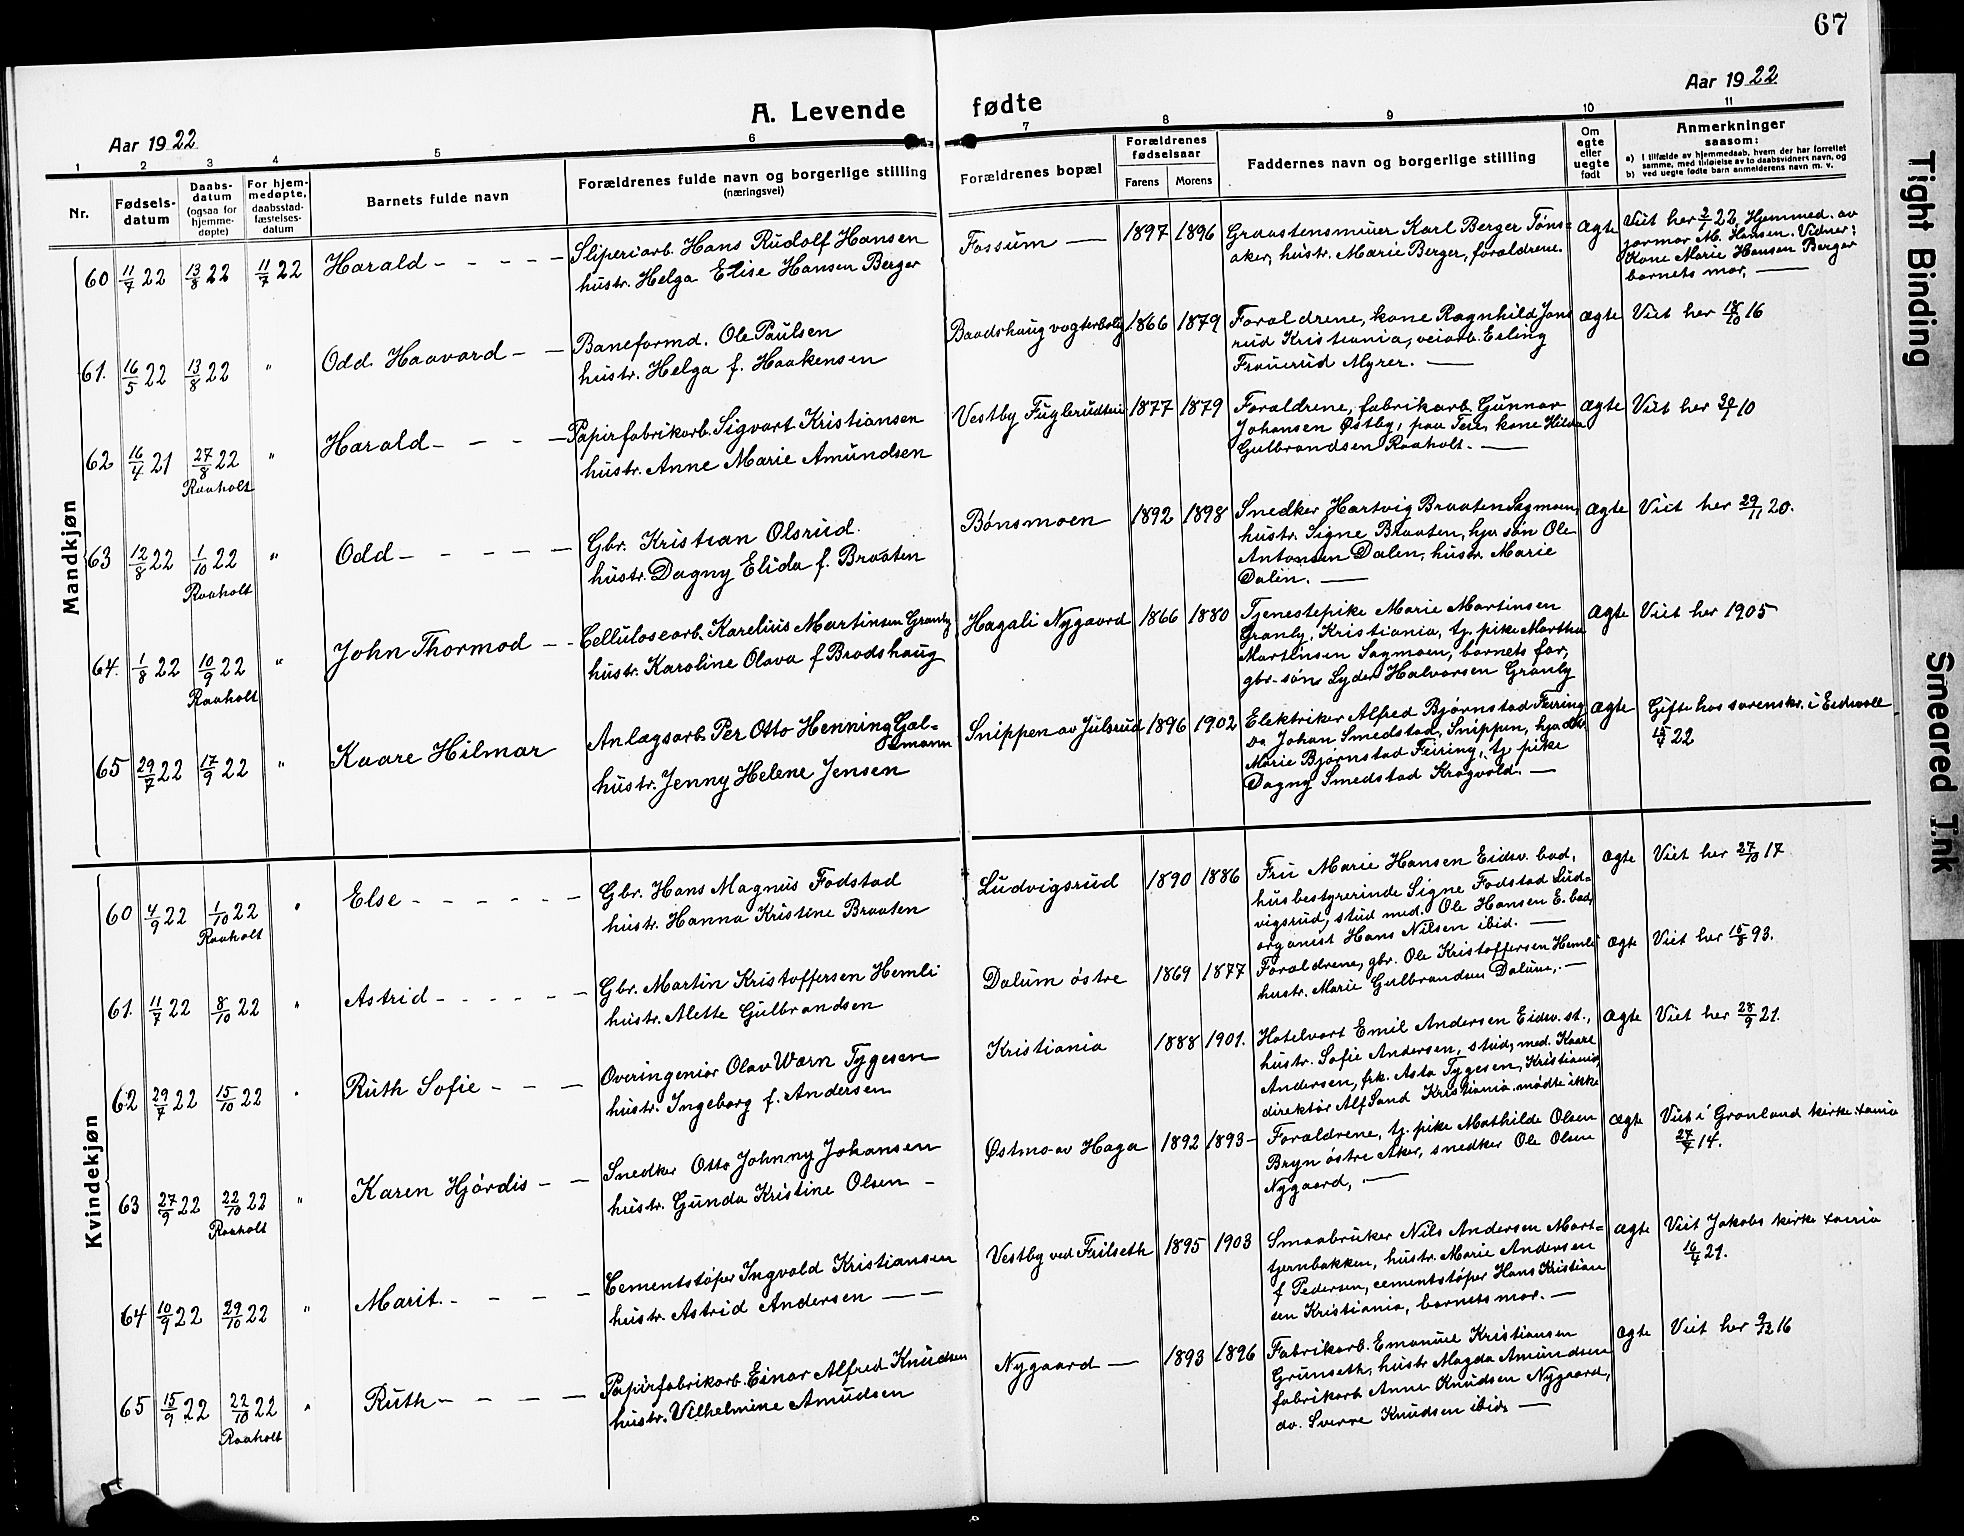 67
Aar 1922
A. Levende fødte
Aar 1922
1 2 3 4 5 6 7 8 9 10 11
Nr.
Fødsels-
datum
Daabs-
datum
(ogsaa for
hjemme-
døpte)
For hjem-
medøpte,
daabsstad-
fæstelses-
datum
Barnets fulde navn
Forældrenes fulde navn og borgerlige stilling
(næringsvei)
Forældrenes bopæl
Forældrenes
fødselsaar
Farens Morens
Faddernes navn og borgerlige stilling
Om
egte
eller
uegte
født
Anmerkninger
saasom:
a) I tilfælde av hjemmedaab, hvem der har forrettet
samme, med tilføielse av to daabsvidners navn, og
b) ved uegte fødte barn anmelderens navn m. v.
Mandkjøn
60 11/7 22 13/8 22 11/7 22 Harald - - - - -
Sliperiarb. Hans Rudolf Hansen
hustr. Helga Elise Hansen Berger
Fossum — 1897 1896
Graastensmurer Karl Berger Tøns=
aker, hustr. Marie Berger, forældrene.
ægte
Viet her 22. Hjemmed. av
jormor M. Hansen. Vidner:
Kone Marie Hansen Berger
barnets mor, —
61. 16/5 22 13/8 22 " Odd Haavard - -
Baneformd. Ole Paulsen
hustr. Helga f. Haakensen
Braadshaug vogterbolig 1866 1879
Forældrene, kone Ragnhild Jons
rud Kristiania, veiarb. Erling
Frauerud Myrer. —
ægte
Viet her 18/10 16
62 16/4 21 27/8 22 " Harald - - - -
Raaholt
Papirfabrikarb. Sigvart Kristiansen
hustr. Anne Marie Amundsen
Vestby Fuglerudteie 1877 1879
Forældrene, fabrikarb. Gunnar
Johansen Østby, paa Teie, kone Hilda
Gulbrandsen Raaholt. —
ægte
Viet her 10
63 12/8 22 1/10 22 " Odd - - - - -
Raaholt
Gbr. Kristian Olsrud.
hustr. Dagny Elida f. Braaten
Bønsmoen 1892 1898
Snedker Hartvig Braaten Sagmoen,
hustr. Signe Braaten, hjv. søn Ole
Antonsen Dalen, hustr. Marie
Dalen. —
ægte
Viet her 29/11 20.
64. 1/8 22 10/9 22 " John Thormod - -
Raaholt
Celluloscarb. Karelius Martinsen Granly
hustr. Karoline Olava f Bradshaug
Hagali Nygaard 1866 1880
Tjenestepike Marie Martinsen
Granly, Kristiania, tj. pike Martha
Martinsen Sagmoen, barnets far,
gbr-søn Lyder Halvorsen Granly
ægte
Viet her 1905
65 29/7 22 17/9 22 " Kaare Hilmar
Anlægsarb. Per Otto Henning Gal=
mann
hustr. Jenny Helene Jensen
Snippen av Julsrud 1896 1902
Elektriker Alfred Bjørnstad Feiring,
Do Johan Smedstad, Snippen, hjv. dtr
Marie Bjørnstad Feiring, tj. pike
Dagny Smedstad Kragvold. —
ægte
Gifte hos sorenskr. i Eidsvoll
15/4 22
Kvindekjøn
60 4/9 22 1/10 22 " Else - - - - - -
Raaholt
Gbr. Hans Magnus Fodstad
hustr. Hanna Kristine Braaten
Ludvigsrud 1890 1886
Fru Marie Hansen Eidsv. bad,
husbestyrerinde Signe Fodstad Lud=
vigsrud, stud med. Ole Hansen E. bad,
organist Hans Nilsen ibid. —
ægte
Viet her 27/10 17
61. 11/7 22 8/10 22 " Astrid - - - - - -
Gbr. Martin Kristoffersen Hemli
hustr. Alette Gulbrandsen
Dalum østre 1869 1877
Forældrene, gbr. Ole Kristoffersen Hemli
hustr. Marie Gulbrandsen Dalum, —
ægte
Viet her 15/8 93.
62 29/7 22 15/10 22 " Ruth Sofie - - -
Overingeniør Olav Warn Tygesen
hustr. Ingeborg f. Andersen
Kristiania 1888 1901.
Hotelvært Emil Andersen Eidsv. st.,
hustr. Sofie Andersen, stud. med. Kaare
Andersen, frk. Asta Tygesen, Kristiania,
direktør Alf Sand Kristiania mødte ikke
ægte
Viet her 28/9 21.
63 27/9 22 22/10 22 " Karen Hjørdis - -
Raaholt
Snedker Otto Johnny Johansen
hustr. Gunda Kristine Olsen -
Østmo av Haga 1892 1893-
Forældrene, tj. pike Mathilde Olsen
Bryn østre Aker, snedker Ole Olsen
Nygaard, —
ægte
Viet i Grønland kirke xania
27/7 14.
64 10/9 22 29/10 22 " Marit. - - - -
Cementstøper Ingvald Kristiansen
hustr. Astrid Andersen — —
Vestby ved Frilseth 1895 1903
Smaabruker Nils Andersen Mart=
tjernbakken, hustr. Marie Andersen
f Pedersen, cementstøper Hans Kristian
sen Kristiania, barnets mor. —
ægte
Viet Jakobs kirke xania
16/4 21.
65 15/9 22 22/10 22 " Ruth - - - -
Raaholt
Papirfabrikarb. Einar Alfred Knudsen
hustr. Vilhelmine Amudsen
Nygaard — 1893 1896
Fabrikarb. Emanuel Kristiansen
Grunseth, hustr Magda Amundsen
fabrikarb Anne Knudsen Nygaard,
do. Sverre Knudsen ibid. —
ægte
Viet her 9/12 16
Tight Binding
Smeared Ink